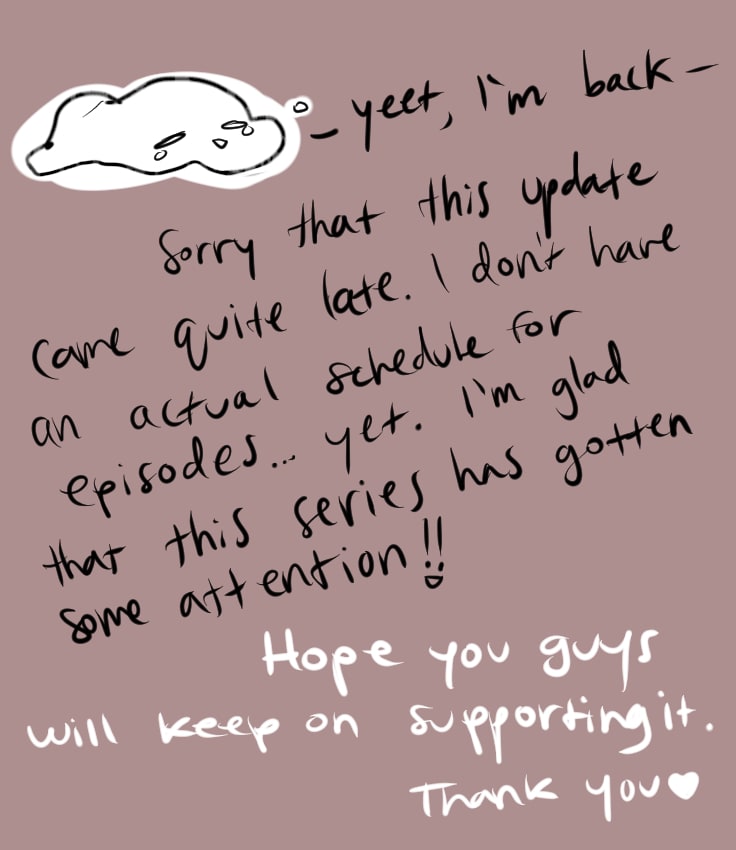 – yeet, I'm back –
Sorry that this update
came quite late. I don't have
an actual schedule for
episodes... yet. I'm glad
that this series has gotten
some attention!!
Hope you guys
will keep on supporting it.
Thank you♥